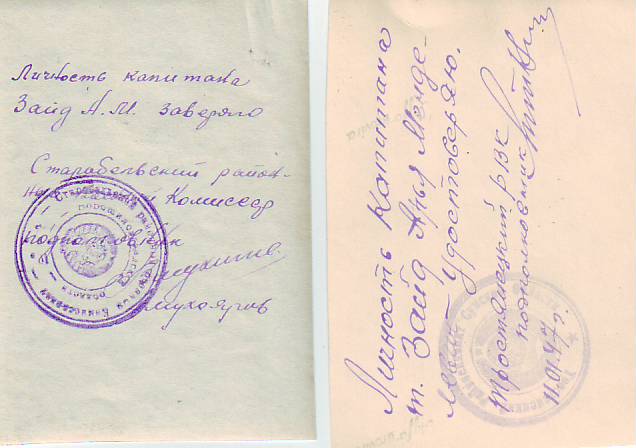 Личность капитана
Зайд А.М. заверяю
Старобельский район-
ный Комиссар
подполковник
Личность капитана
т. Зайд Анья Менде-
Удостоверяю.
Тростянецкий РВК
подполковник
11.01.47г.